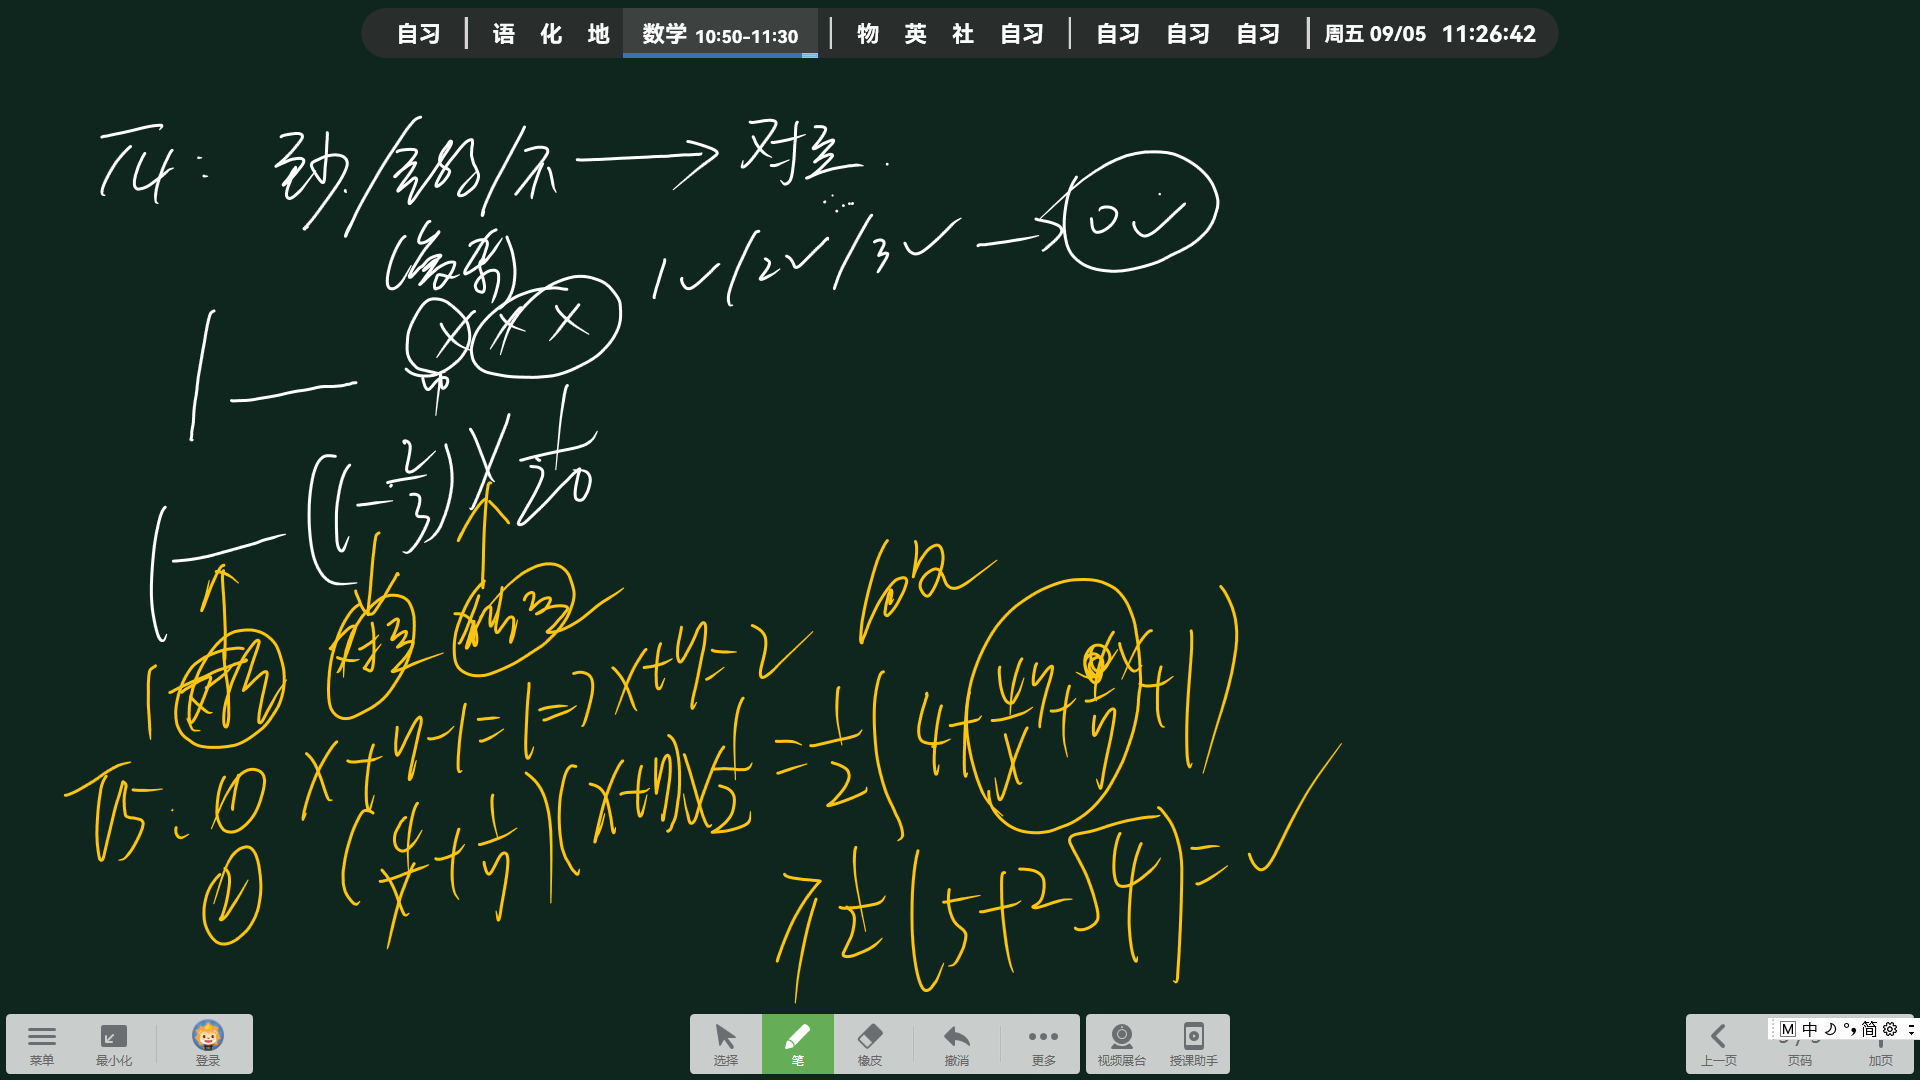 自习 | 语 化 地 数学 10:50-11:30 | 物 英 社 自习 | 自习 自习 自习 | 周五 09/05 11:26:42
T4: 至少/至多/不 → 对立.
1✓/2✓/3✓ → 0✓
× × ×
1 —
1 — (1-2/3) × 1/20
对立 独立
T5: ① x+y-1=1 => x+y=2
② (4/x+1/y)(x+y)×1/2 = 1/2(4+4y/x+x/y+1)
≥1/2(5+2√4)= ✓
菜单 最小化 登录 选择 笔 橡皮 撤消 更多 视频展台 授课助手 上一页 页码 加页
M 中 简